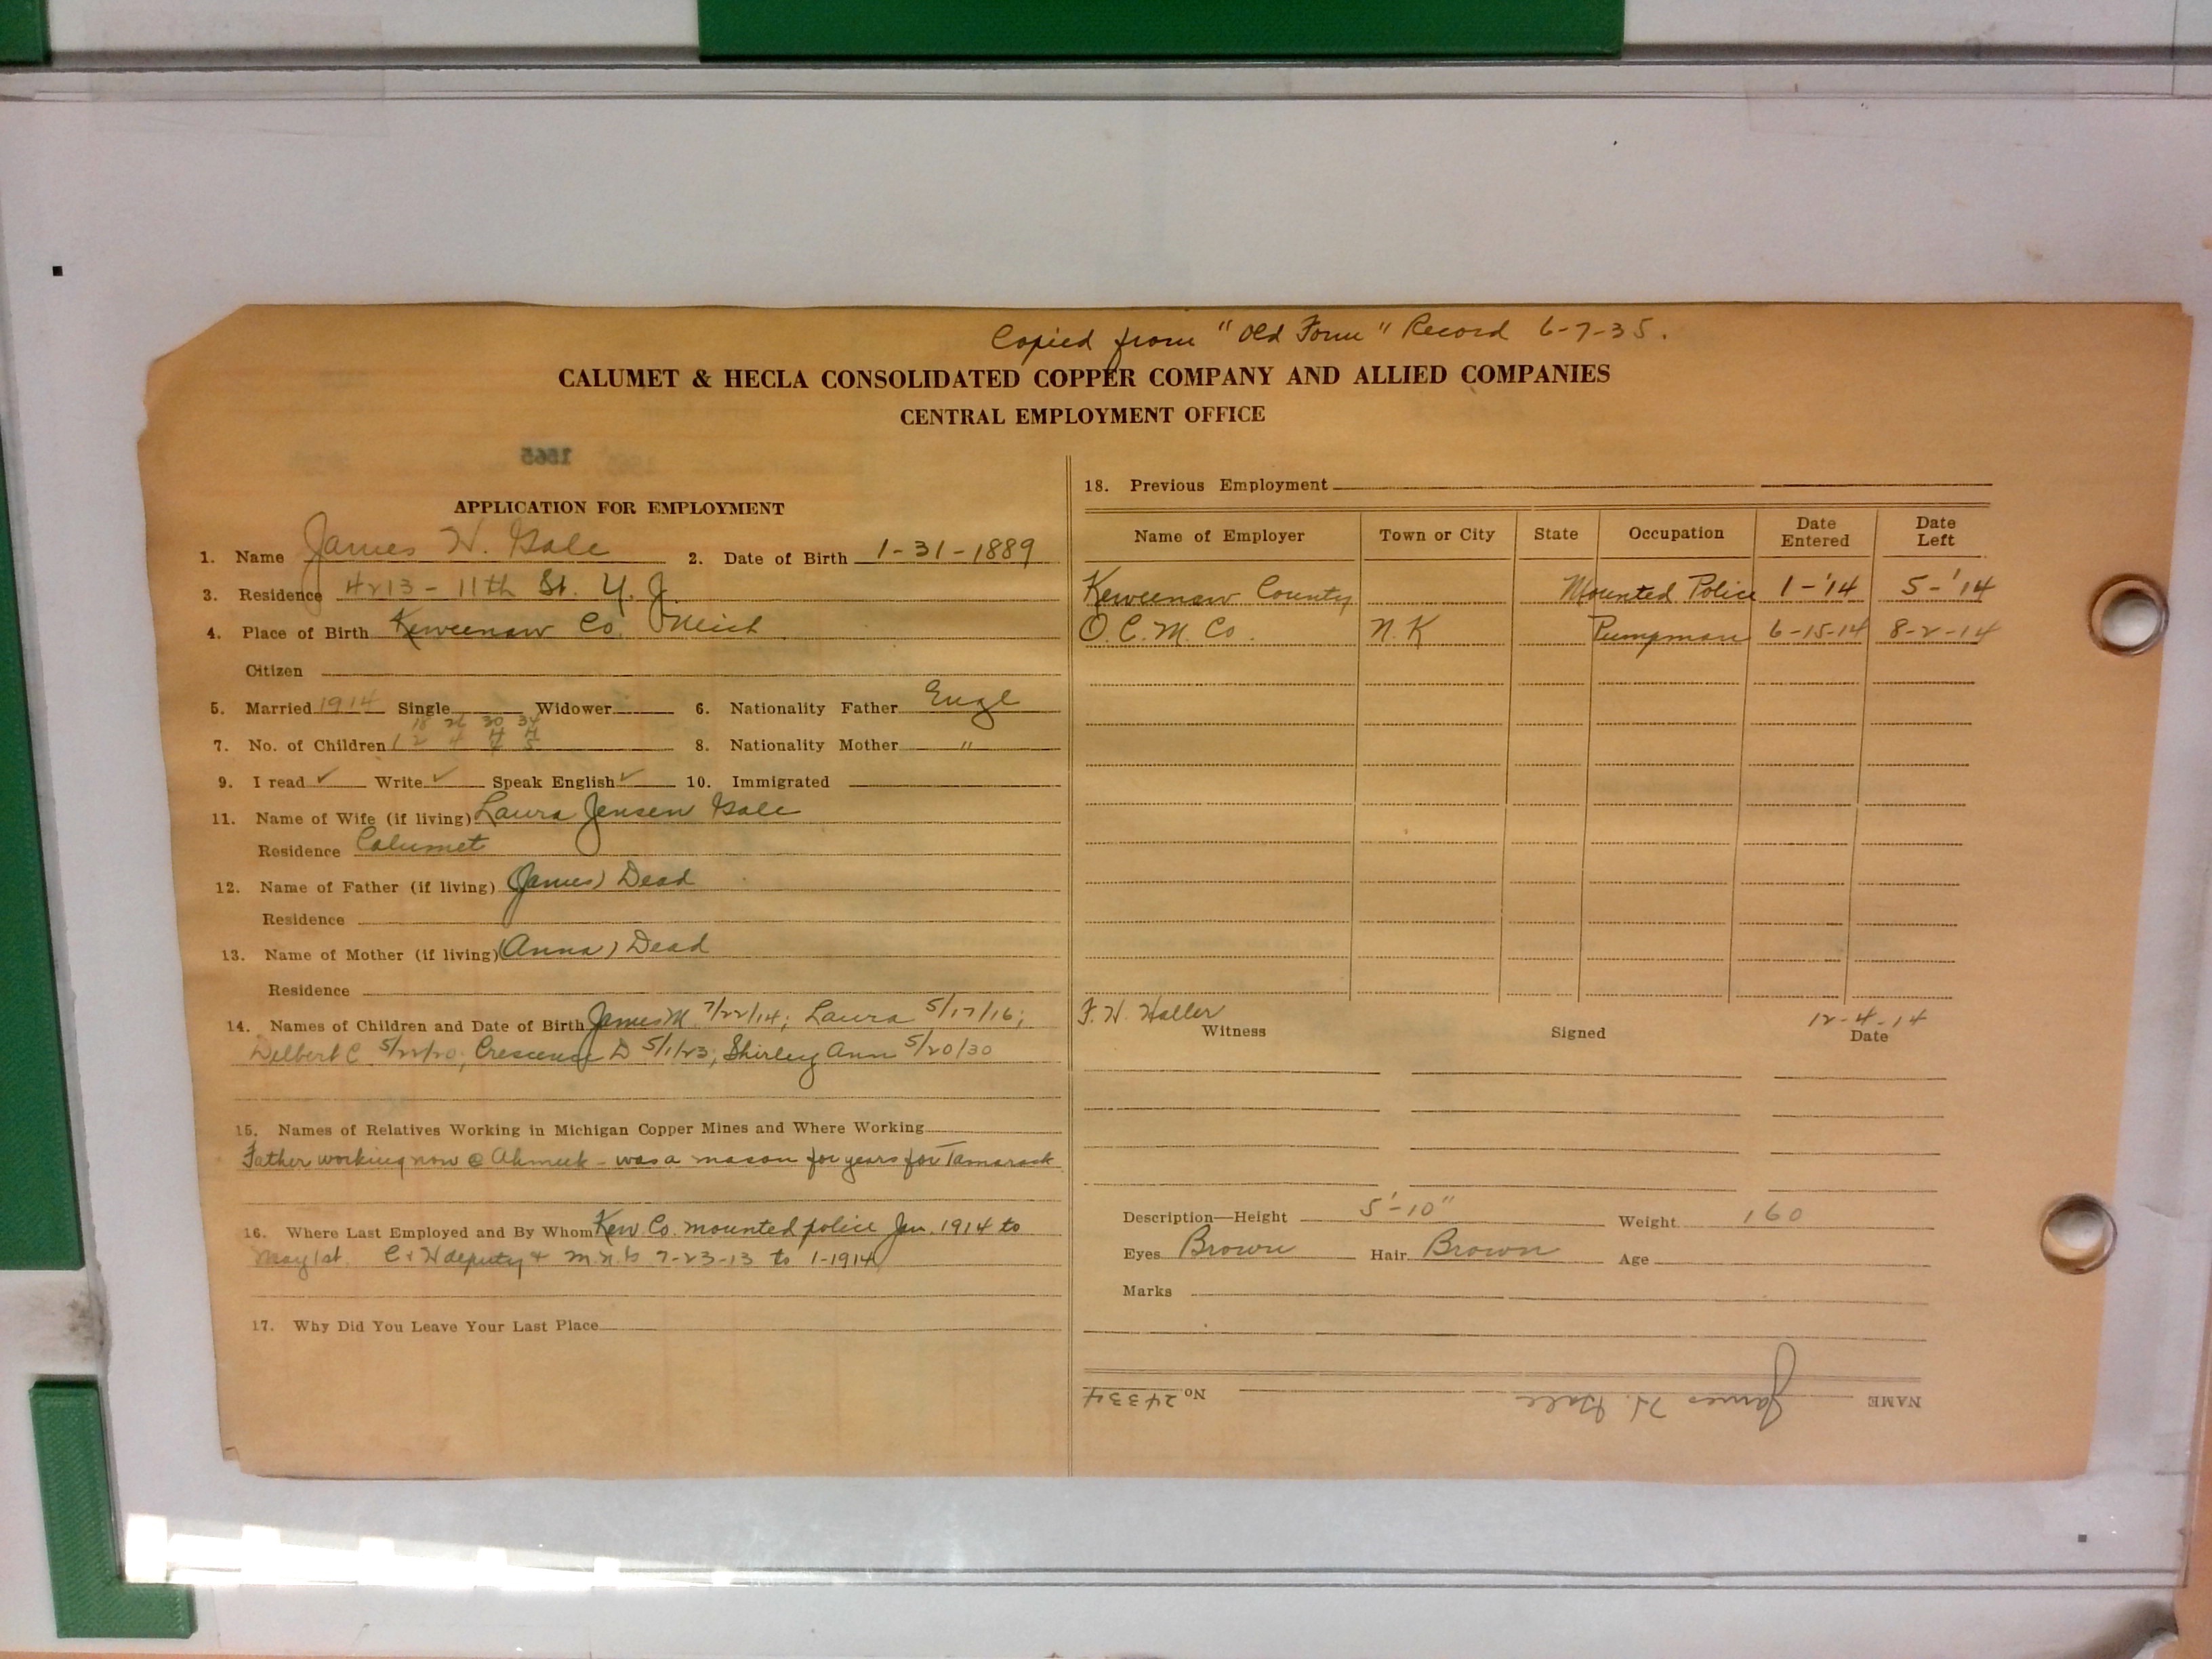 Copied from "Old Form" Record 6-7-35.
CALUMET & HECLA CONSOLIDATED COPPER COMPANY AND ALLIED COMPANIES
CENTRAL EMPLOYMENT OFFICE
1565
APPLICATION FOR EMPLOYMENT
1. Name James H. Gale 2. Date of Birth 1-31-1889
3. Residence 4213 - 11th St. Y. J.
4. Place of Birth Keweenaw Co. Mich
Citizen
5. Married 1914 Single Widower 6. Nationality Father Engl
18 26 30 34
7. No. of Children 1 2 4 4 5 8. Nationality Mother "
9. I read ✓ Write ✓ Speak English ✓ 10. Immigrated
11. Name of Wife (if living) Laura Jensen Gale
Residence Calumet
12. Name of Father (if living) (James) Dead
Residence
13. Name of Mother (if living) (Anna) Dead
Residence
14. Names of Children and Date of Birth James M. 7/22/14; Laura 5/17/16;
Delbert C 5/22/20; Crescence D 5/1/23; Shirley Ann 5/20/30
15. Names of Relatives Working in Michigan Copper Mines and Where Working
Father working now @ Ahmeek - was a mason for years for Tamarack
16. Where Last Employed and By Whom Kew Co. mounted police Jan. 1914 to
May 1st. C & H deputy & M.N.G. 7-23-13 to 1-1914
17. Why Did You Leave Your Last Place
18. Previous Employment
Name of Employer Town or City State Occupation Date Entered Date Left
Keweenaw County Mounted Police 1-'14 5-'14
O. C. M. Co. N. K Pumpman 6-15-14 8-2-14
F. H. Haller 12-4-14
Witness Signed Date
Description—Height 5'-10" Weight 160
Eyes Brown Hair Brown Age
Marks
NAME James H. Gale No. 24334